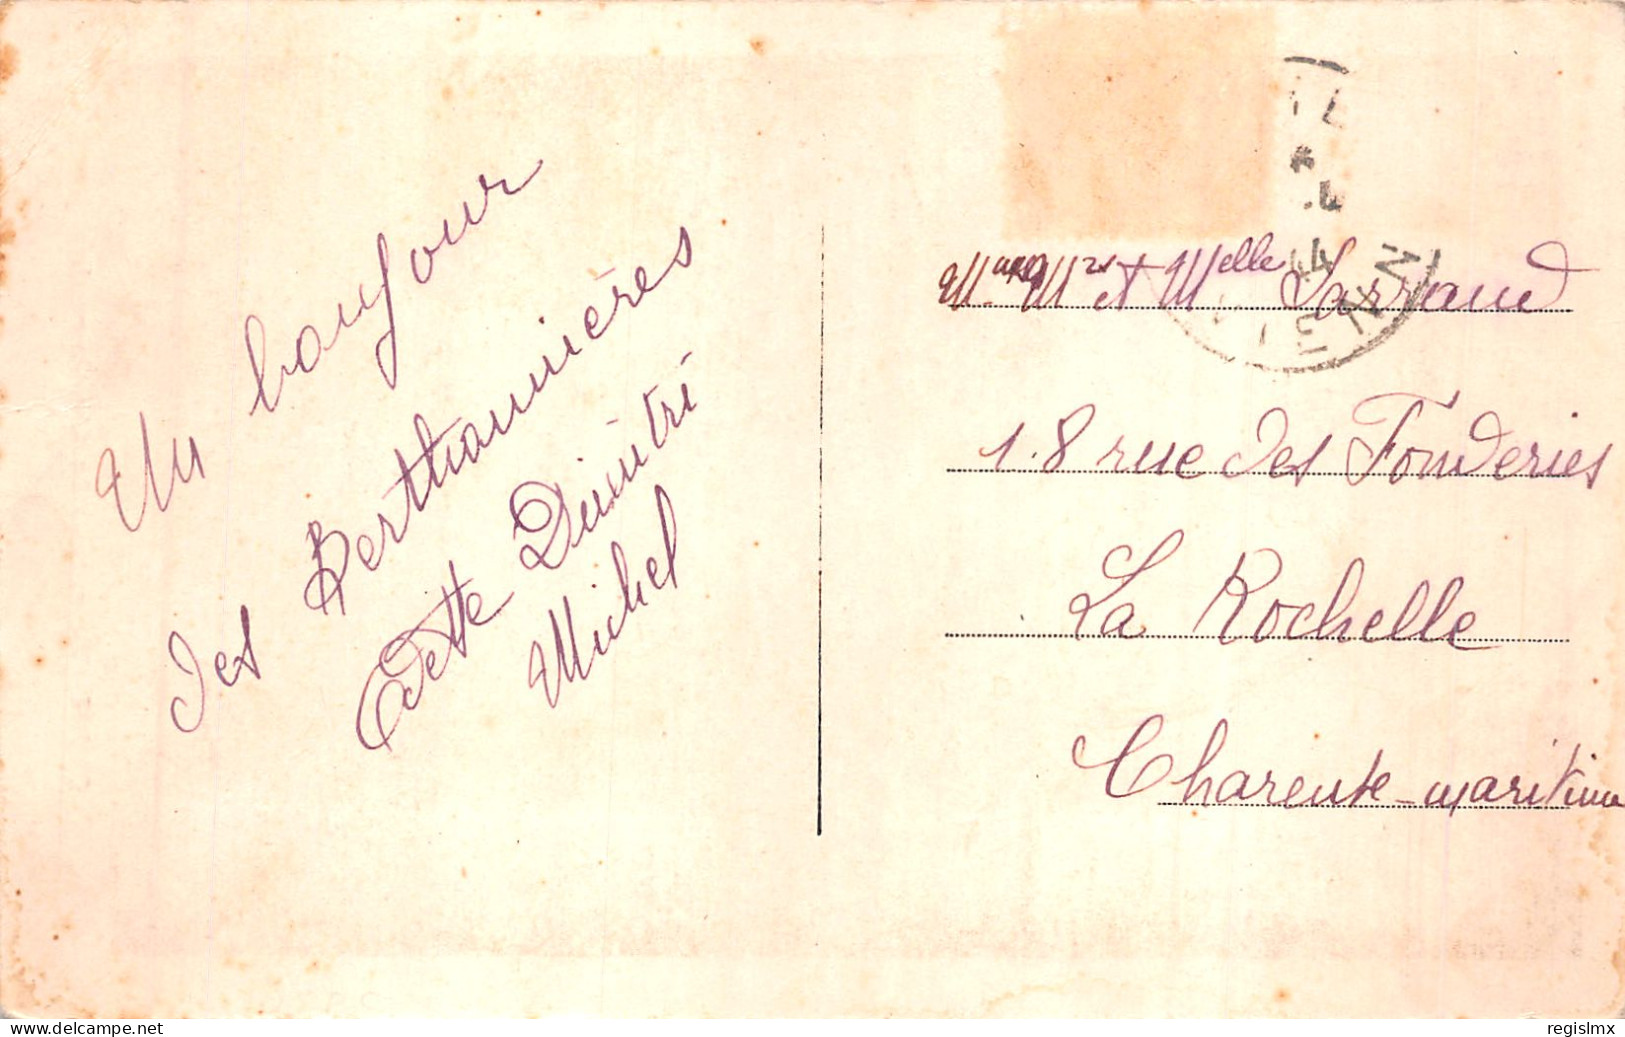 Un bonjour
des Berthomières
Odette Dimitri
Michel
Mr et Melle Larraud
18 rue des Fonderies
La Rochelle
Charente-maritime
44
delcampe.net
regislmx